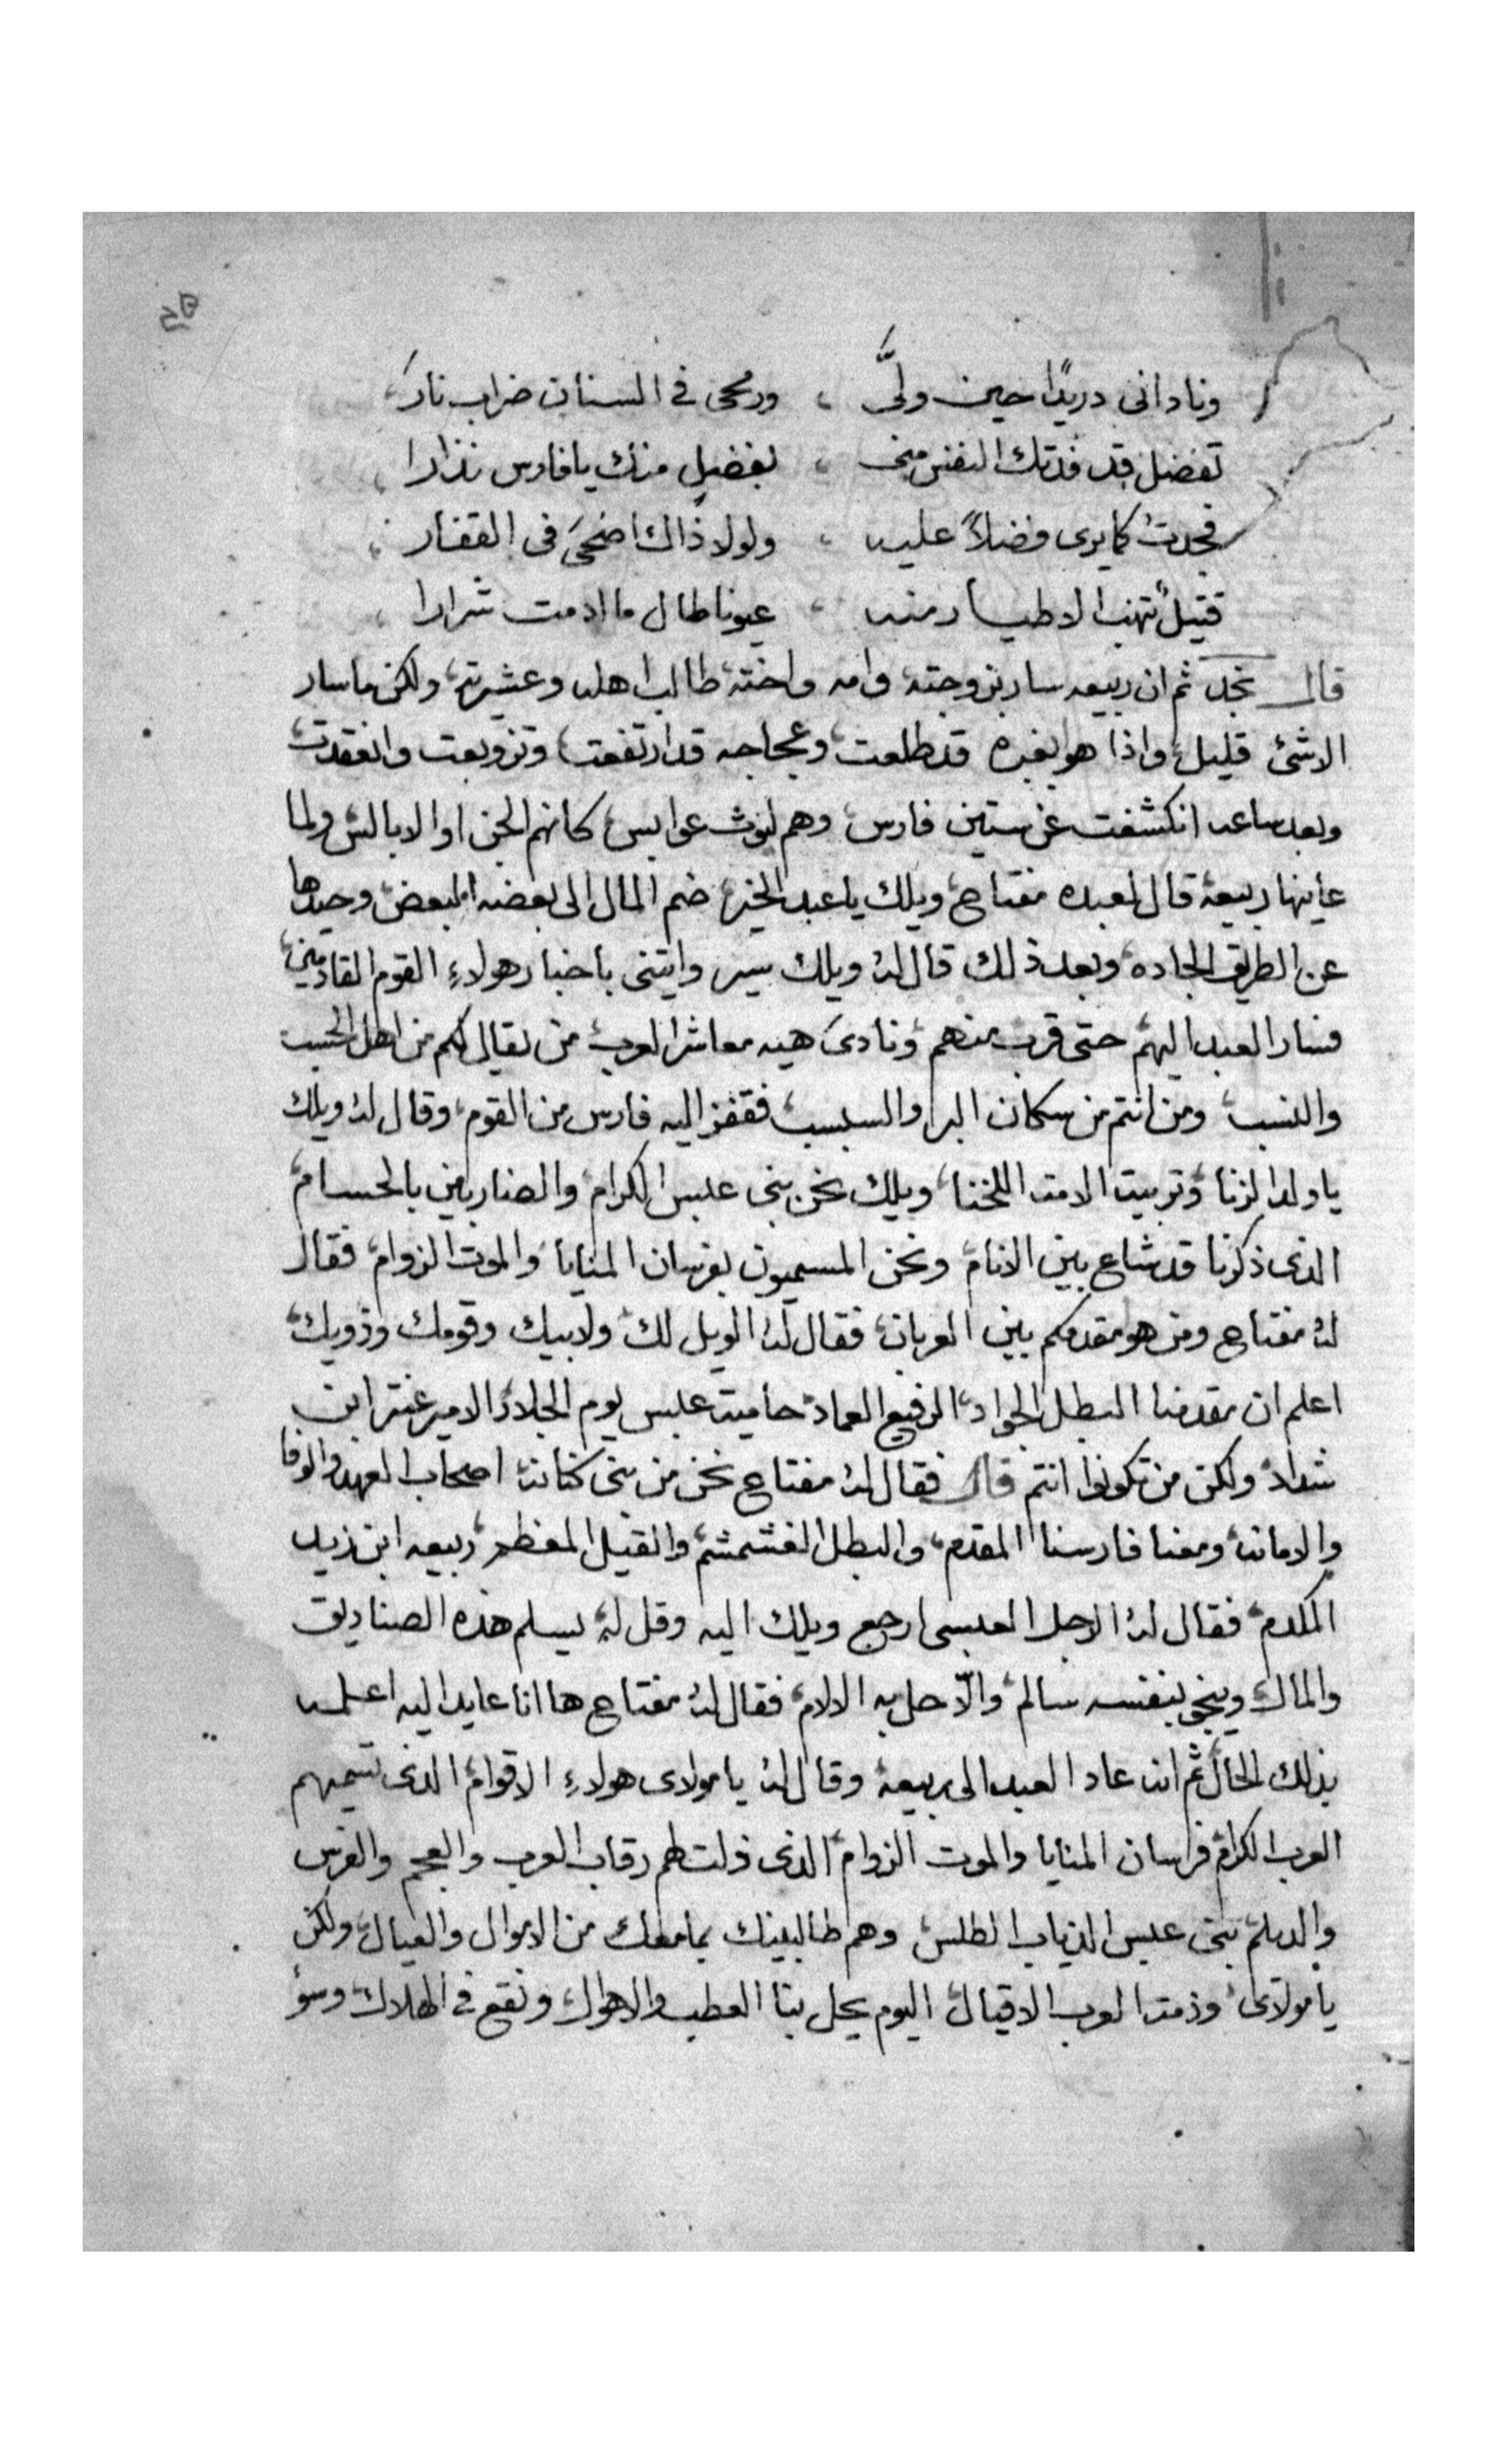 ونادانى دريدًا حين ولَّى ، ورمحى فى السنان ضراب نارَ
تفضل قد فدتك النفس منى ، بفضلٍ منك يا فارس نزارا
فجدتُ كما يرى فضلاً عليه ، ولولا ذاك اضحىَ فى القفار
قتيلٌ تنهب الاطيار منه ، عيونا طال ما ادمت شرارا
قال نجد ثم ان ربيعه سار بزوجته وامه واخته طالب اهله وعشيرته ولكن ما سار
الا شئ قليل واذا هو بغبره قد طلعت وعجاجه قد ارتفعت وتزوبعت وانعقدت
وبعد ساعه انكشفت عن ستين فارس وهم ليوث عوابس كانهم الجن او الابالس ولما
عاينها ربيعة قال لعبده مفتاح ويلك يا عبد الخير ضم المال الى بعضه البعض وحيدها
عن الطريق الجاده وبعد ذلك قال له ويلك سير وايتنى باخبار هولاءِ القوم القادمين
فسار العبد اليهم حتى قرب منهم ونادىَ هيه معاشر العرب من يقال لكم من اهل الحسب
والنسب ومن انتم من سكان البر والسبسب فقفز اليه فارس من القوم وقال له ويلك
يا ولد الزنا وتربيت الامة اللخنا ويلك نحن بنى عبس الكرام والضاربين بالحسام
الذى ذكرنا قد شاع بين الانام ونحن المسميون بفرسان المنايا والموت الزوام فقال
له مفتاح ومن هو مقدمكم بين العربان فقال له الويل لك ولابيك وقومك وذويك
اعلم ان مقدمنا البطل الجواد الرفيع العماد حامية عبس يوم الجلاد الامير عنتر ابن
شداد ولكن من تكونوا انتم قال فقال له مفتاح نحن من بنى كنانه اصحاب العهد والوفا
والامانه ومعنا فارسنا المقدم والبطل الغشمشم والقيل المعظم ربيعه ابن زيد
المكدم فقال له الرجل العبسى ارجع ويلك اليه وقل له يسلم هذه الصناديق
والمال وينجى بنفسه سالم والّا حل به الالام فقال له مفتاح ها انا عايد اليه اعلمه
بذلك الحال ثم انه عاد العبد الى ربيعة وقال له يا مولاى هولاءِ الاقوام الذى تسميهم
العرب الكرام فرسان المنايا والموت الزوام الذى ذلت لهم رقاب العرب والعجم والفرس
والديلم بنى عبس الذياب الطلس وهم طالبينك بما معك من الاموال والعيال ولكن
يا مولاى وذمة العرب الاقيال اليوم يحل بنا العطب والاهوال ونقع فى الهلاك وسؤ